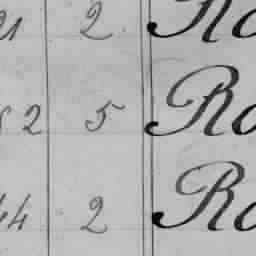 21 2 Ro
82 5 Ro
44 2 Ro